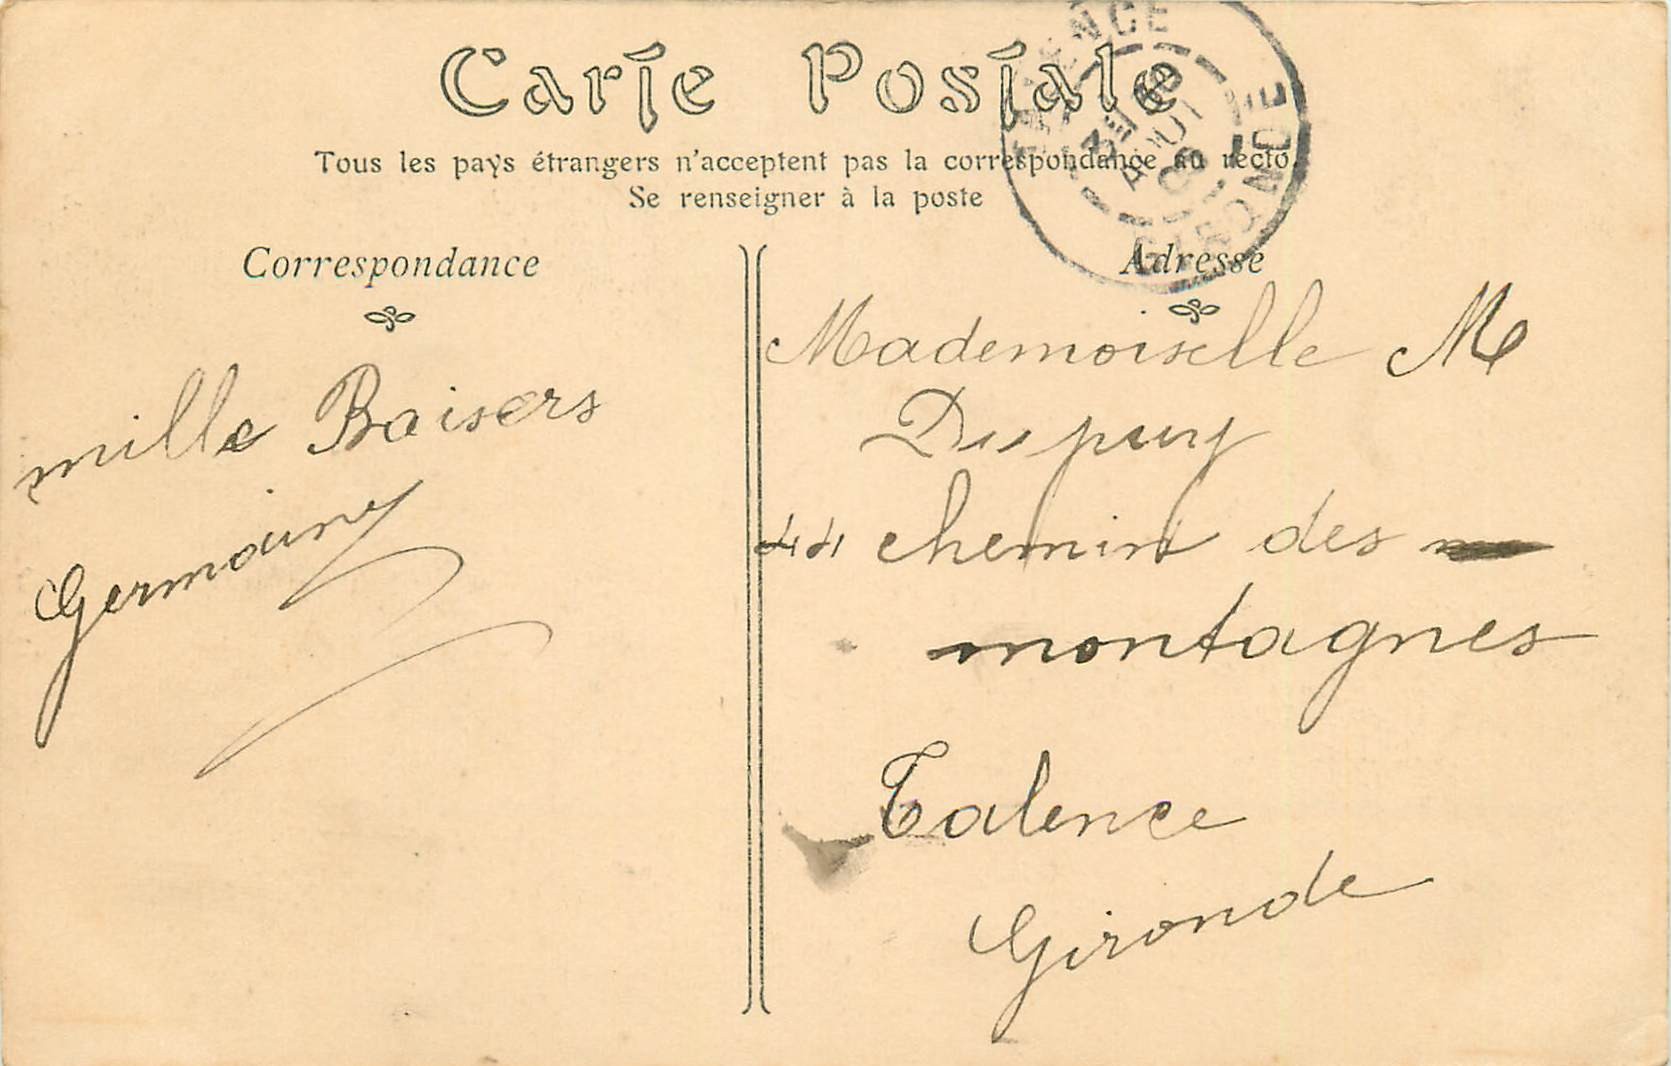 Carte Postale
Tous les pays étrangers n'acceptent pas la correspondance au recto.
Se renseigner à la poste
Correspondance
mille Baisers
Germaine
Adresse
Mademoiselle M
Dupuy
44 chemin des
montagnes
Talence
Gironde
TALENCE
AOUT
GIRONDE